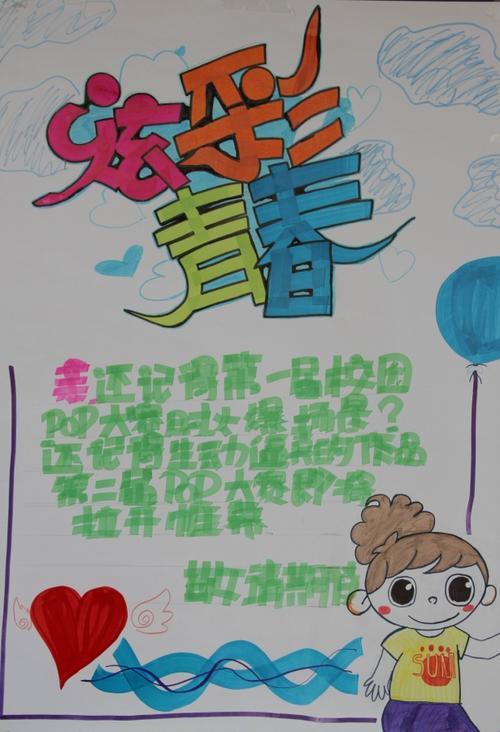 炫彩
青春
亲,还记得第一届校园
POP大赛的火爆场景?
还记得生动逼真的作品
第二届POP大赛即将
拉开帷幕
敬请期待
SUN